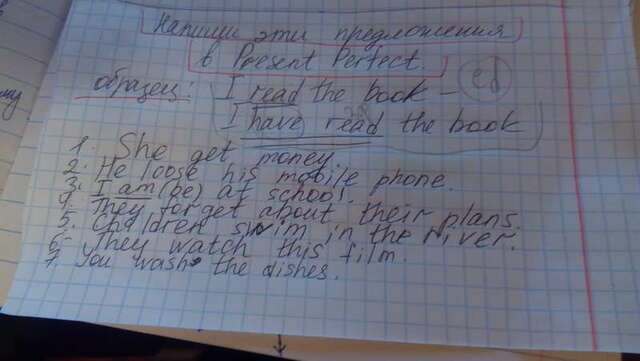 Напиши эти предложения
в Present Perfect.
образец: I read the book – ed
I have read the book
1. She get money.
2. He loose his mobile phone.
3. I am (be) at school.
4. They forget about their plans.
5. Children swim in the river.
6. They watch this film.
7. You wash the dishes.